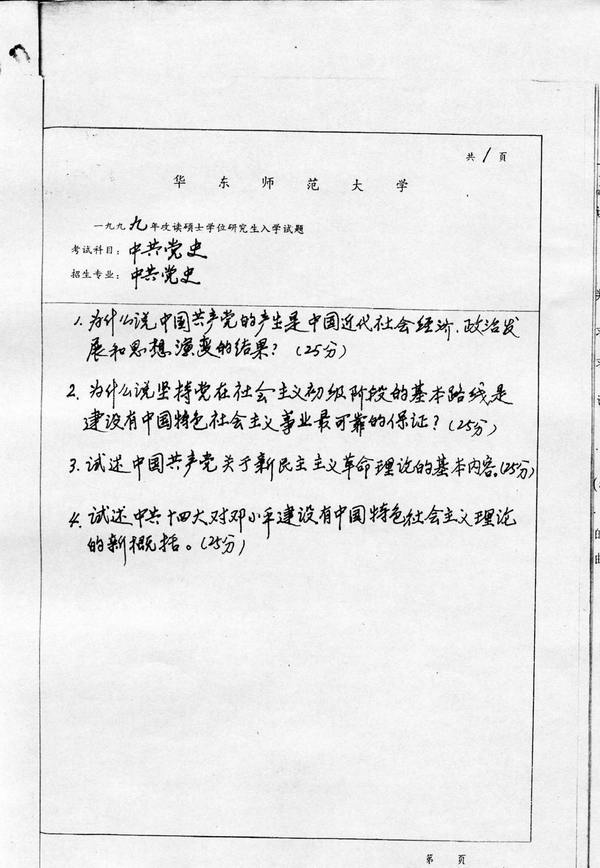 共1页
华东师范大学
一九九九年攻读硕士学位研究生入学试题
考试科目：中共党史
招生专业：中共党史
1. 为什么说中国共产党的产生是中国近代社会经济、政治发
展和思想演变的结果？（25分）
2. 为什么说坚持党在社会主义初级阶段的基本路线是
建设有中国特色社会主义事业最可靠的保证？（25分）
3. 试述中国共产党关于新民主主义革命理论的基本内容。（25分）
4. 试述中共十四大对邓小平建设有中国特色社会主义理论
的新概括。（25分）
第 页